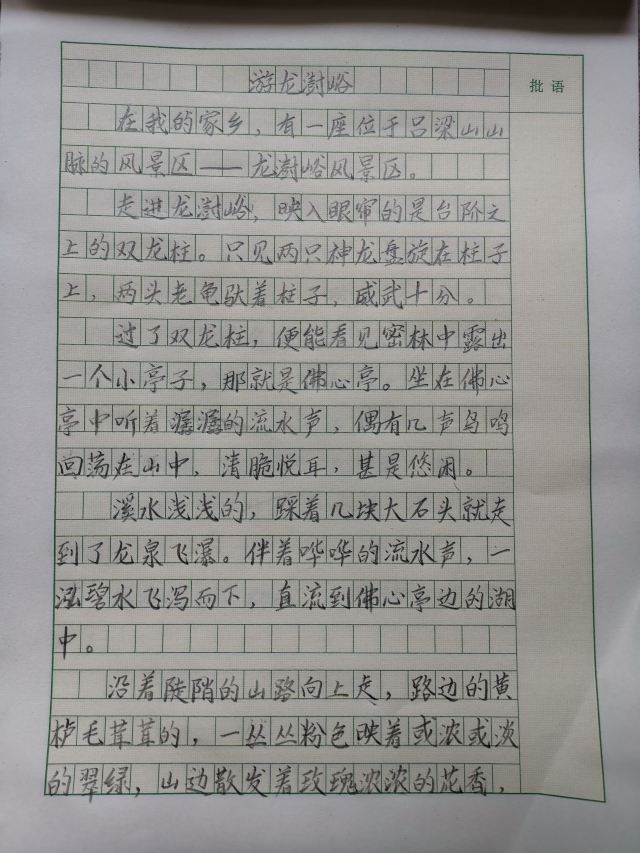 游龙澍峪
批语
在我的家乡，有一座位于吕梁山山
脉的风景区——龙澍峪风景区。
走进龙澍峪，映入眼帘的是台阶之
上的双龙柱。只见两只神龙盘旋在柱子
上，两头老龟驮着柱子，威武十分。
过了双龙柱，便能看见密林中露出
一个小亭子，那就是佛心亭。坐在佛心
亭中听着潺潺的流水声，偶有几声鸟鸣
回荡在山中，清脆悦耳，甚是悠闲。
溪水浅浅的，踩着几块大石头就走
到了龙泉飞瀑。伴着哗哗的流水声，一
泓碧水飞泻而下，直流到佛心亭边的湖
中。
沿着陡峭的山路向上走，路边的黄
栌毛茸茸的，一丛丛粉色映着或浓或淡
的翠绿，山边散发着玫瑰浓浓的花香，